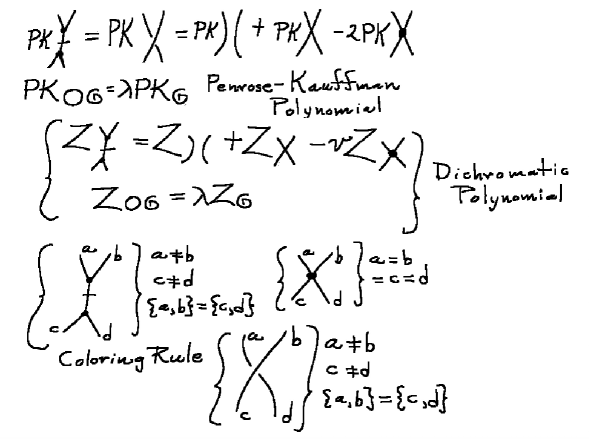 PK = PK = PK )( + PK X - 2PK X
PK OG = λPK G Penrose-Kauffman
Polynomial
{ Z = Z )( + Z X - vZ X
Z OG = λZ G } Dichromatic
Polynomial
{ a b c d } a≠b
c≠d
{a,b}={c,d}
{ a b c d } a=b
=c=d
Coloring Rule
{ a b c d } a≠b
c≠d
{a,b}={c,d}